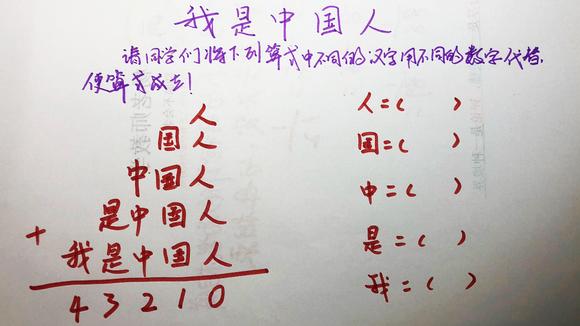 我是中国人
请同学们将下列算式中不同的汉字用不同的数字代替,
使算式成立!
人
国人
中国人
是中国人
+ 我是中国人
43210
人=( )
国=( )
中=( )
是=( )
我=( )